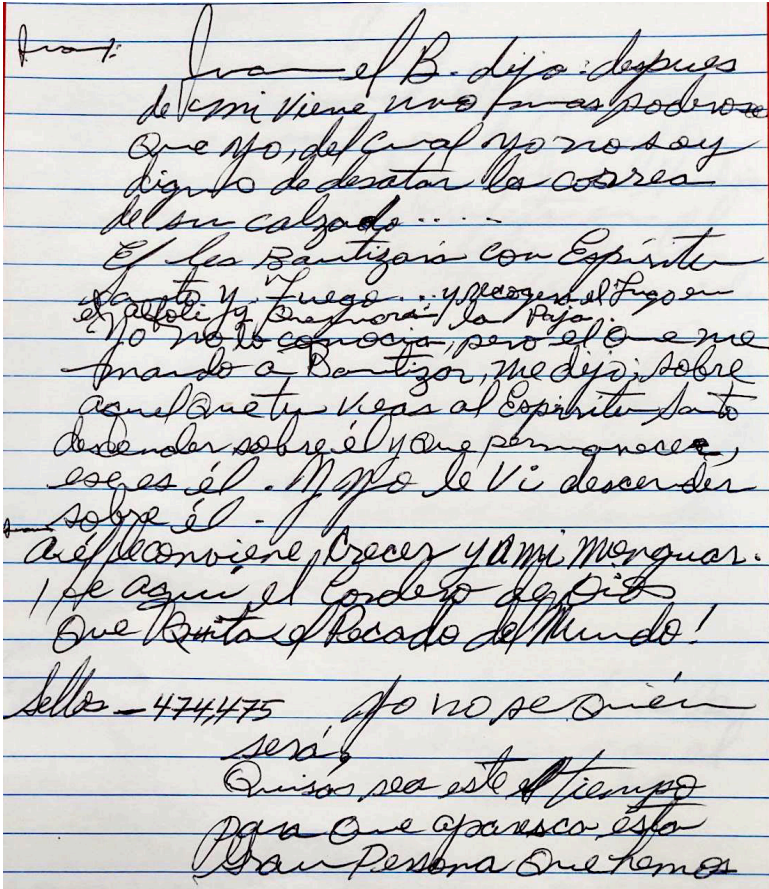 Juan: Juan el B. dijo: despues
de mi viene uno mas poderoso
que yo, del cual yo no soy
digno de desatar la correa
de su calzado.....
El les Bautizará con Espíritu
Santo y Fuego... y recogera el trigo en
el alfolí y quemara la Paja.
Yo no lo conocia, pero el que me
mando a Bautizar, me dijo; sobre
aquel que tu veas al Espiritu Santo
descender sobre él y que permanece,
ese es él. Y yo le Vi descender
sobre él.
Juan
A él le conviene Crecer y a mi menguar.
¡He aquí el Cordero de Dios
que Quita el Pecado del Mundo!
Sellos - 474,475 Yo no se quién
será,
Quisás sea este el tiempo
para que aparesca esta
Gran Persona que hemos